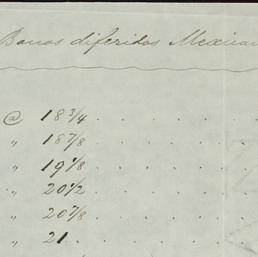 Bonos diferidos Mexican
@ 18 3/4 . . . . .
" 18 7/8 . . . . .
" 19 1/8 . . . . .
" 20 1/2 . . . . .
" 20 7/8 . . . . .
" 21 . . . . .